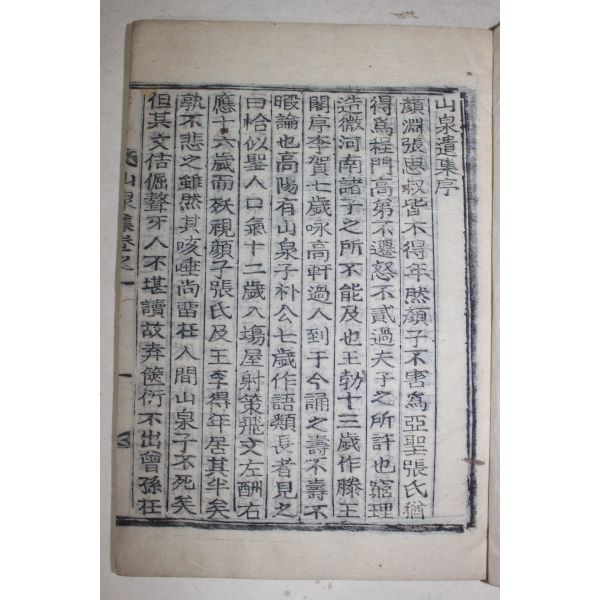 山泉遺集序
顔淵張思叔皆不得年然顔子不害爲亞聖張氏猶
得爲程門高第不遷怒不貳過夫子之所許也窮理
造微河南諸子之所不能及也王勃十三歲作滕王
閣序李賀七歲咏高軒過人到于今誦之壽不壽不
暇論也高陽有山泉子朴公七歲作語類長者見之
曰恰似聖人口氣十二歲入塲屋射策飛文左酬右
應十六歲而殀視顔子張氏及王李得年居其半矣
孰不悲之雖然其咳唾尚留在人間山泉子不死矣
但其文佶倔聱牙人不堪讀故弆篋衍不出曾孫在
山泉集卷之一